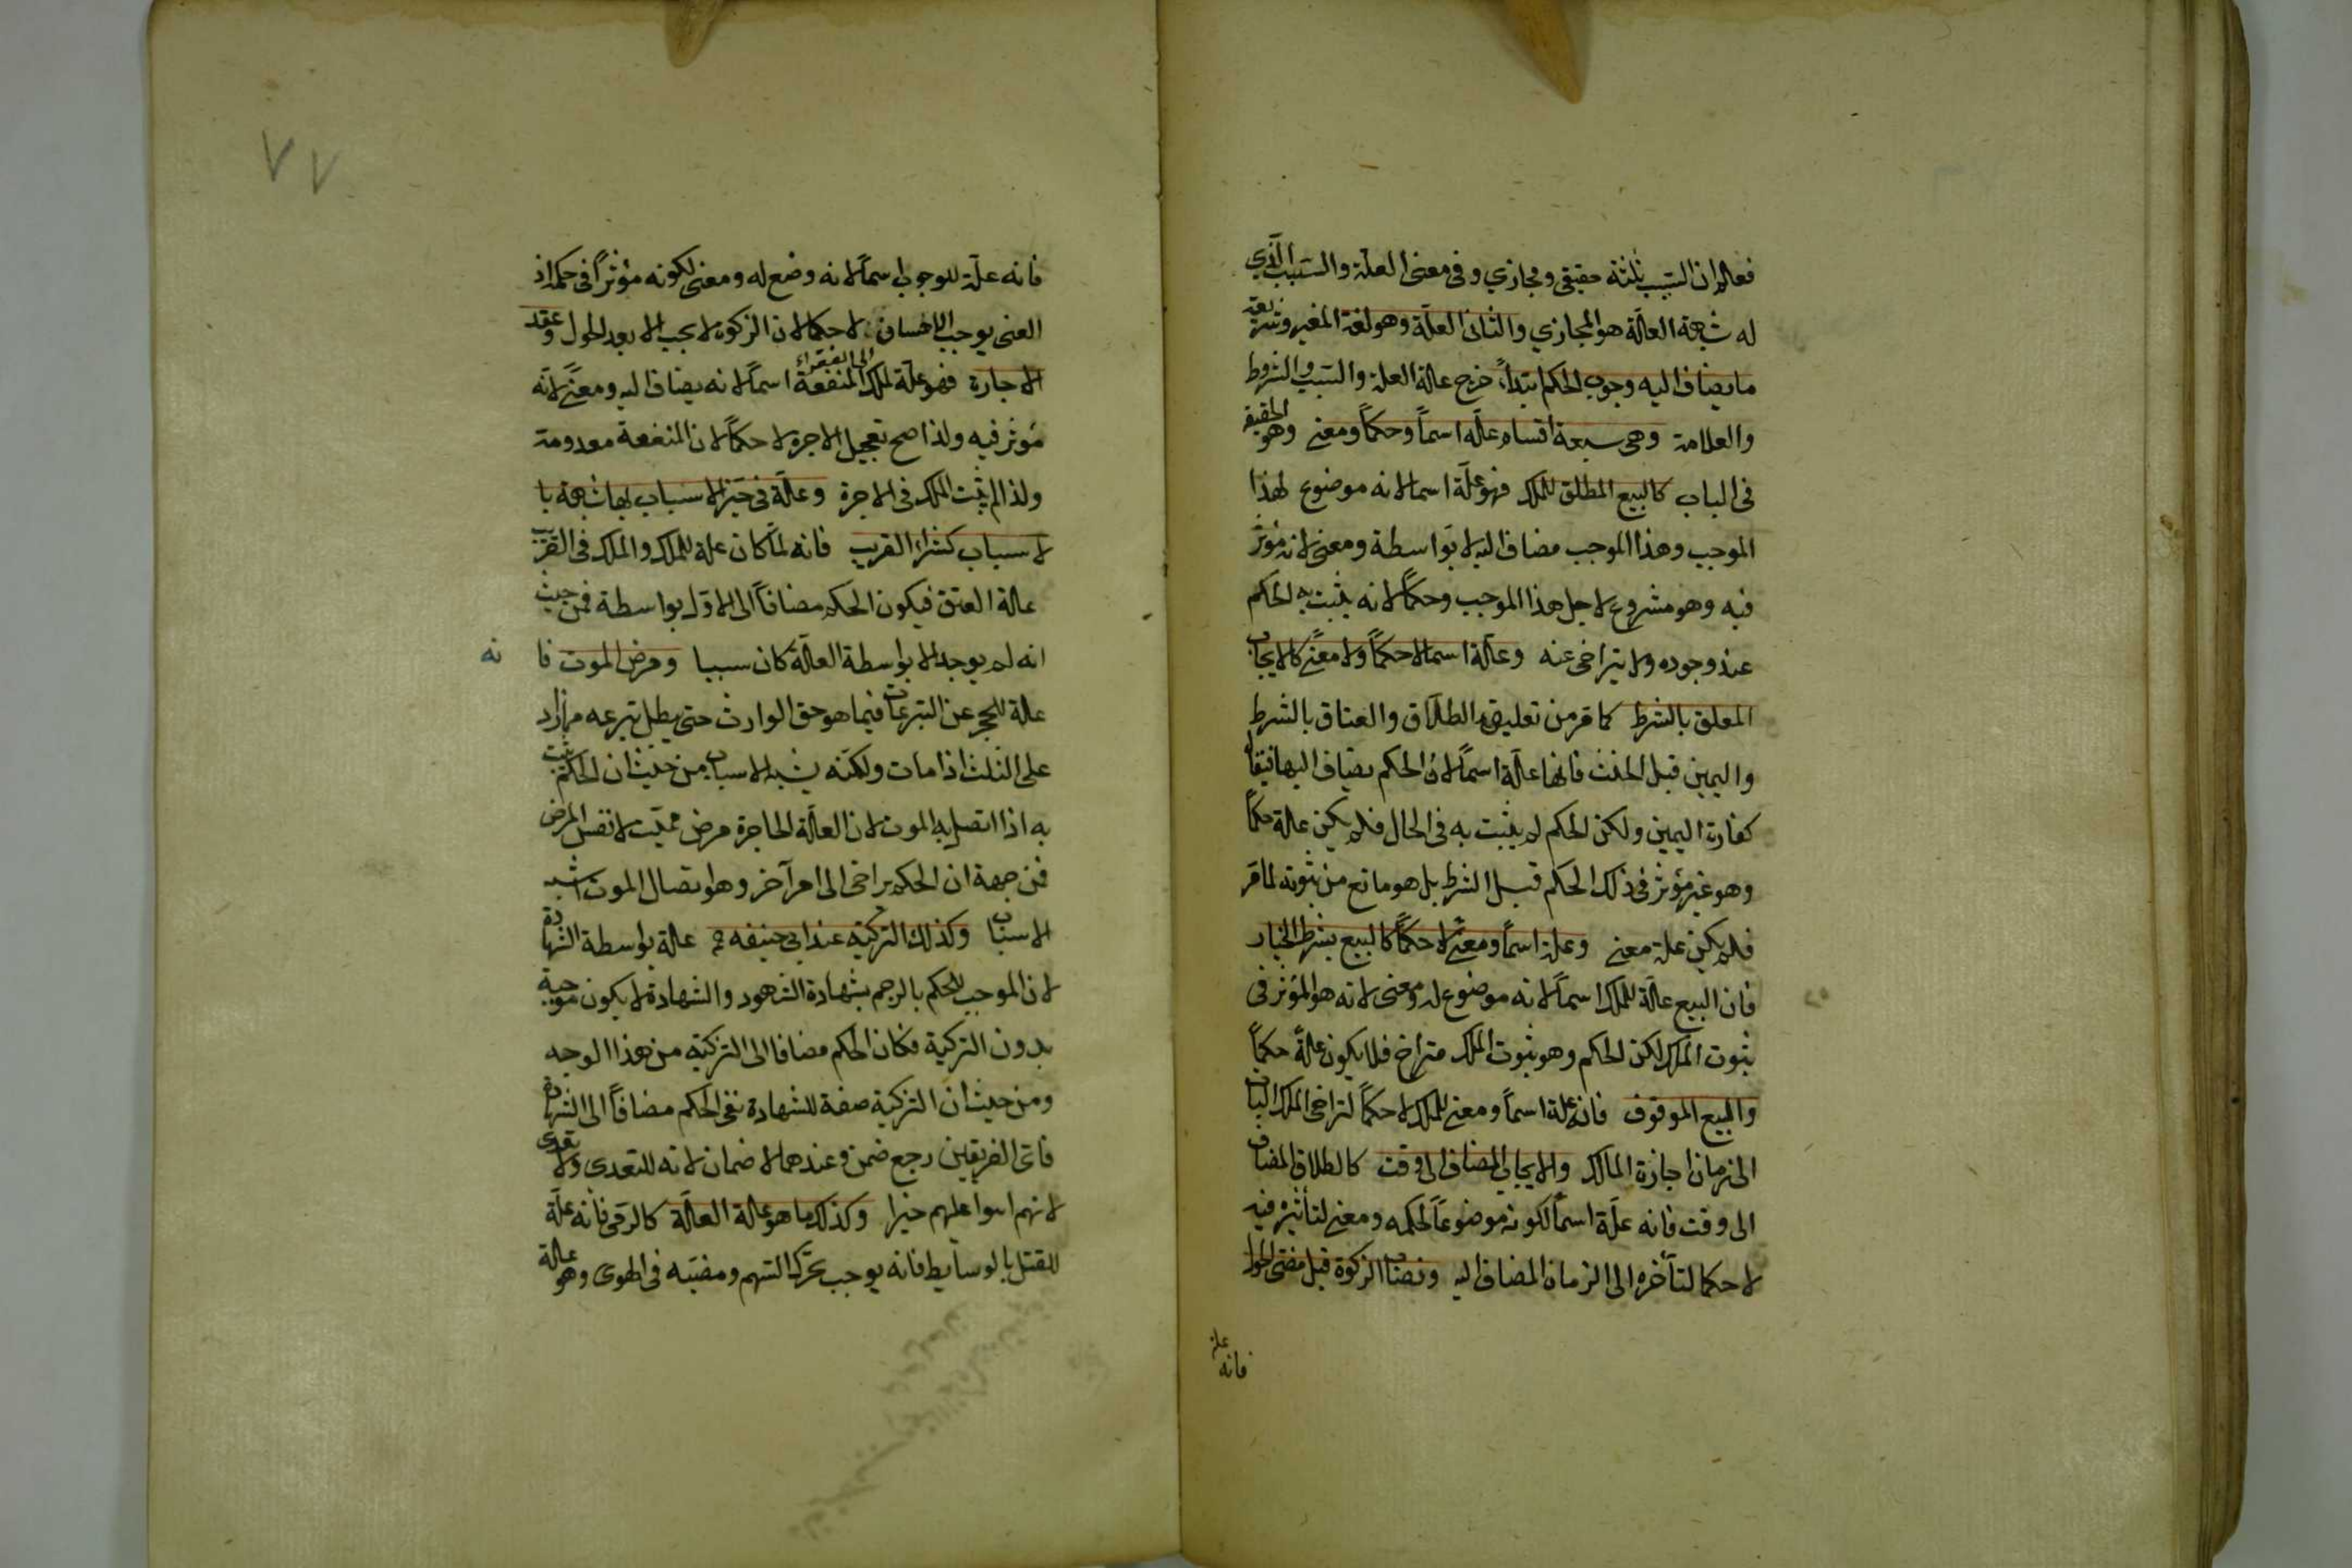 فعلم ان السبب ثلثة حقيقي ومجازي وفي معنى العلة والسبب الذي
له شبهة العلة هو المجازي والثاني العلة وهو لغة المغير وشريعة
ما يضاف اليه وجوب الحكم ابتداءً خرج علة العلة والسبب والشروط
والعلامة وهي سبعة اقسام علة اسماً وحكماً ومعنى وهو الحقيقة
في الباب كالبيع المطلق للملك فهو علة اسما لانه موضوع لهذا
الموجب وهذا الموجب مضاف اليه لا بواسطة ومعنى لانه مؤثر
فيه وهو مشروع لاجل هذا الموجب وحكماً لانه يثبت به الحكم
عند وجوده ولا يتراخى عنه وعلة اسما لا حكماً ولا معنًى كالايجاب
المعلق بالشرط كما مر من تعليق الطلاق والعتاق بالشرط
واليمين قبل الحنث فانها علة اسماً لان الحكم يضاف اليها فيقال
كفارة اليمين ولكن الحكم لم يثبت به في الحال فلم يكن علة حكماً
وهو غير مؤثر في ذلك الحكم قبل الشرط بل هو مانع من ثبوته لما مر
فلم يكن علة معنى وعلة اسماً ومعنًى لا حكماً كالبيع بشرط الخيار
فان البيع علة للملك اسماً لانه موضوع له ومعنى لانه هو المؤثر في
ثبوت الملك لكن الحكم وهو ثبوت الملك متراخ فلا يكون علةً حكماً
والبيع الموقوف فانه علة اسماً ومعنى للملك لا حكماً لتراخي الملك البات
الى زمان اجازة المالك والايجاب المضاف الى وقت كالطلاق المضاف
الى وقت فانه علة اسماً لكونه موضوعاً لحكمه ومعنى لتأثيره فيه
لا حكما لتأخره الى الزمان المضاف اليه ونصاب الزكوة قبل مضى الحول
فانه علة
٧٧
فانه علة للوجوب اسماً لانه وضع له ومعنى لكونه مؤثراً في حكمه اذ
الغنى يوجب الاحسان الى الفقراء لا حكما لان الزكوة لا يجب الا بعد الحول وعقد
الاجارة فهو علة لملك المنفعة اسماً لانه يضاف اليه ومعنًى لانه
مؤثر فيه ولذا صح تعجيل الاجرة لا حكماً لان المنفعة معدومة
ولذا لم يثبت الملك في الاجرة وعلة في حيز الاسباب لها شبهة با
لاسباب كشراء القريب فانه لما كان علة للملك والملك في القريب
علة العتق فيكون الحكم مضافاً الى الاول بواسطة فمن حيث
انه لم يوجد الا بواسطة العلة كان سببا ومرض الموت فا نه
علة للحجر عن التبرعات فيما هو حق الوارث حتى يبطل تبرعه مما زاد
على الثلث اذا مات ولكنه يشبه الاسباب من حيث ان الحكم يثبت
به اذا اتصل به الموت لان العلة الحاجرة مرض مميت لا نفس المرض
فمن جهة ان الحكم تراخى الى امر آخر وهو اتصال الموت اشبه
الاسباب وكذلك التزكية عند ابي حنيفه علة بواسطة الشهادة
لان الموجب للحكم بالرجم شهادة الشهود والشهادة لا يكون موجبة
بدون التزكية فكان الحكم مضافا الى التزكية من هذا الوجه
ومن حيث ان التزكية صفة للشهادة بقي الحكم مضافاً الى الشهادة
فاى الفريقين رجع ضمن وعندهما لا ضمان لانه للتعدي ولا تعدي
لانهم اثنوا عليهم خيرا وكذلك ما هو علة العلة كالرمي فانه علة
للقتل بالوسايط فانه يوجب تحرك السهم ومضيه في الهوى وهو علة